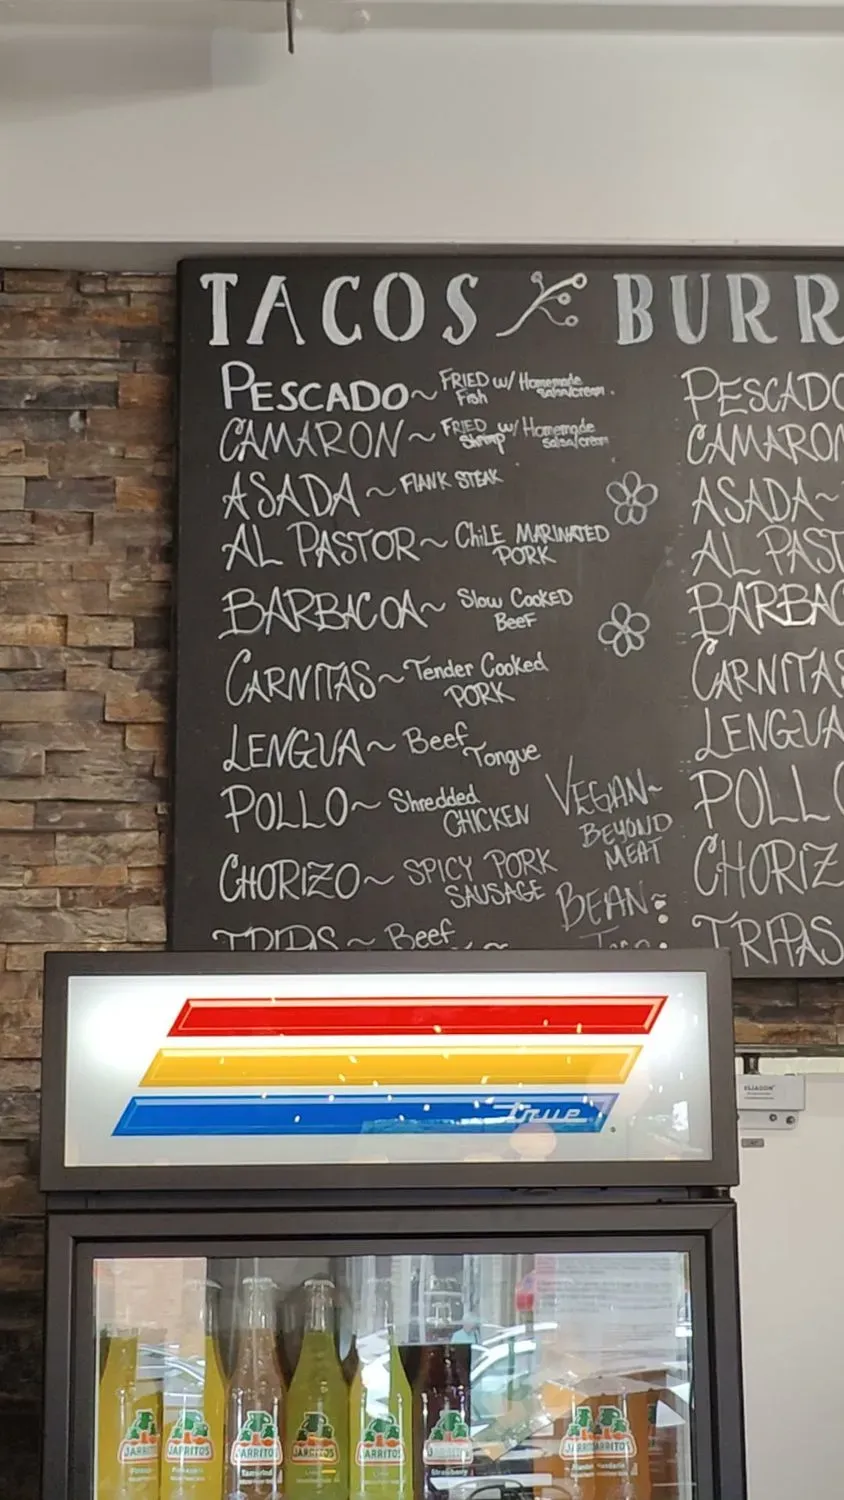 TACOS BURR
PESCADO~ FRIED w/ Homemade
Fish salsa/cream.
CAMARON~ FRIED w/ Homemade
Shrimp salsa/cream
ASADA~ FLANK STEAK
AL PASTOR~ CHiLE MARINATED
PORK
BARBACOA~ Slow COOKED
BEEF
CARNITAS~ Tender Cooked
PORK
LENGUA~ Beef
Tongue
POLLO~ Shredded
CHICKEN
CHORIZO~ SPICY PORK
SAUSAGE
TRIPAS~ Beef
VEGAN~
BEYOND
MEAT
BEAN~
PESCADO
CAMARON
ASADA~
AL PAST
BARBAC
CARNITAS
LENGUA
POLLO
CHORIZ
TRIPAS
true
JARRITOS
JARRITOS
Pineapple
JARRITOS
Tamarind
JARRITOS
Lime
JARRITOS
Lime
JARRITOS
Strawberry
JARRITOS
Mandarin